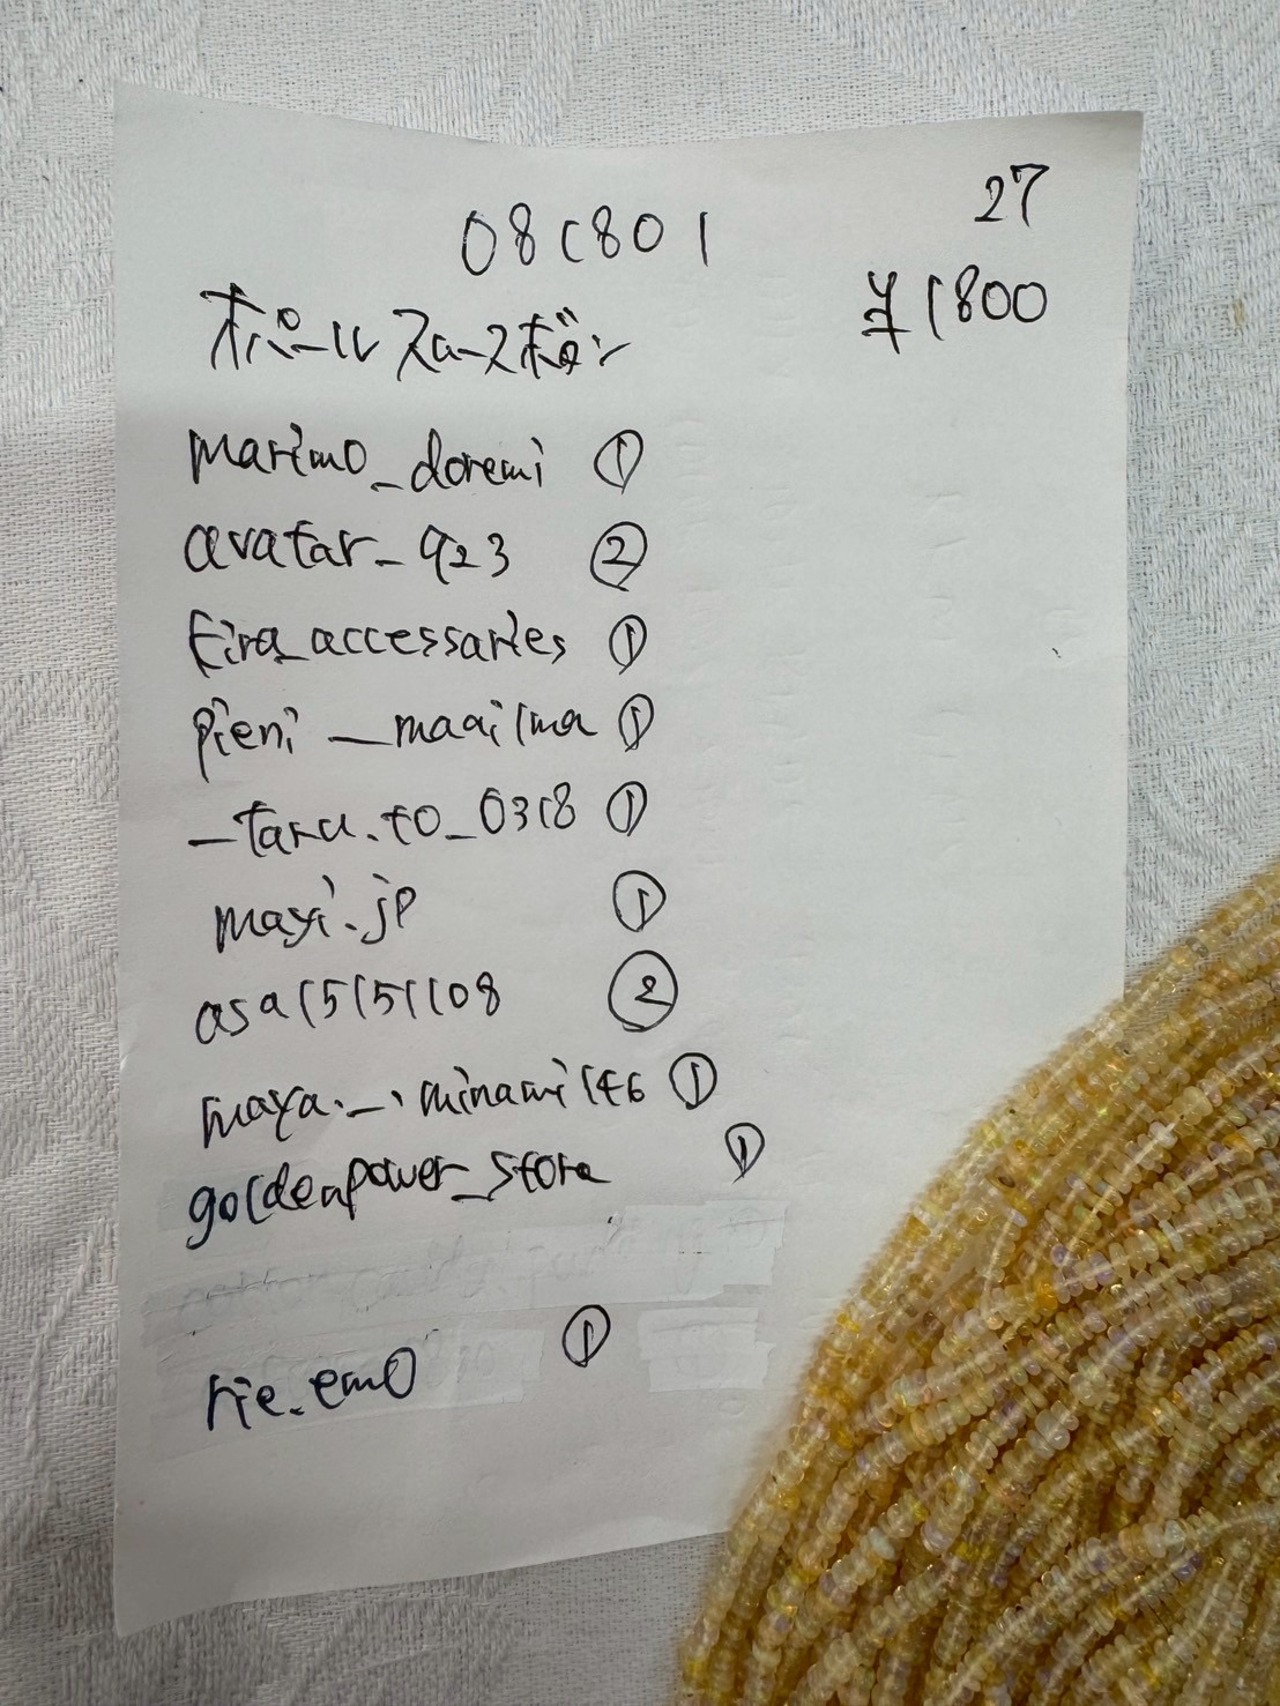 27
081801
¥1800
オパールスムースボタン
marimo_doremi ①
avatar_923 ②
Eira_accessaries ①
pieni_maailma ①
_taru.to_0318 ①
mayi.jp ①
asa15151108 ②
maya._.minami146 ①
goldenpower_store ①
rie_emo ①